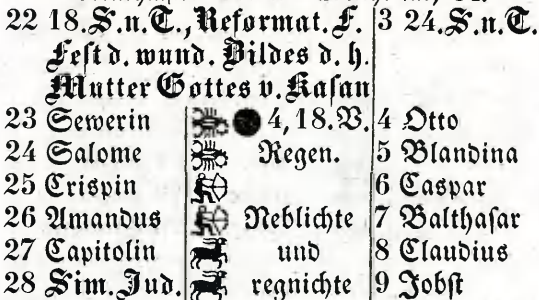 22 18.S.n.T., Reformat. F. 3 24.S.n.T.
Fest d. wund. Bildes d. h.
Mutter Gottes v. Kasan
23 Sewerin 4, 18. V. 4 Otto
24 Salome Regen. 5 Blandina
25 Crispin 6 Caspar
26 Amandus Neblichte 7 Balthasar
27 Capitolin und 8 Claudius
28 Sim. Jud. regnichte 9 Jobst